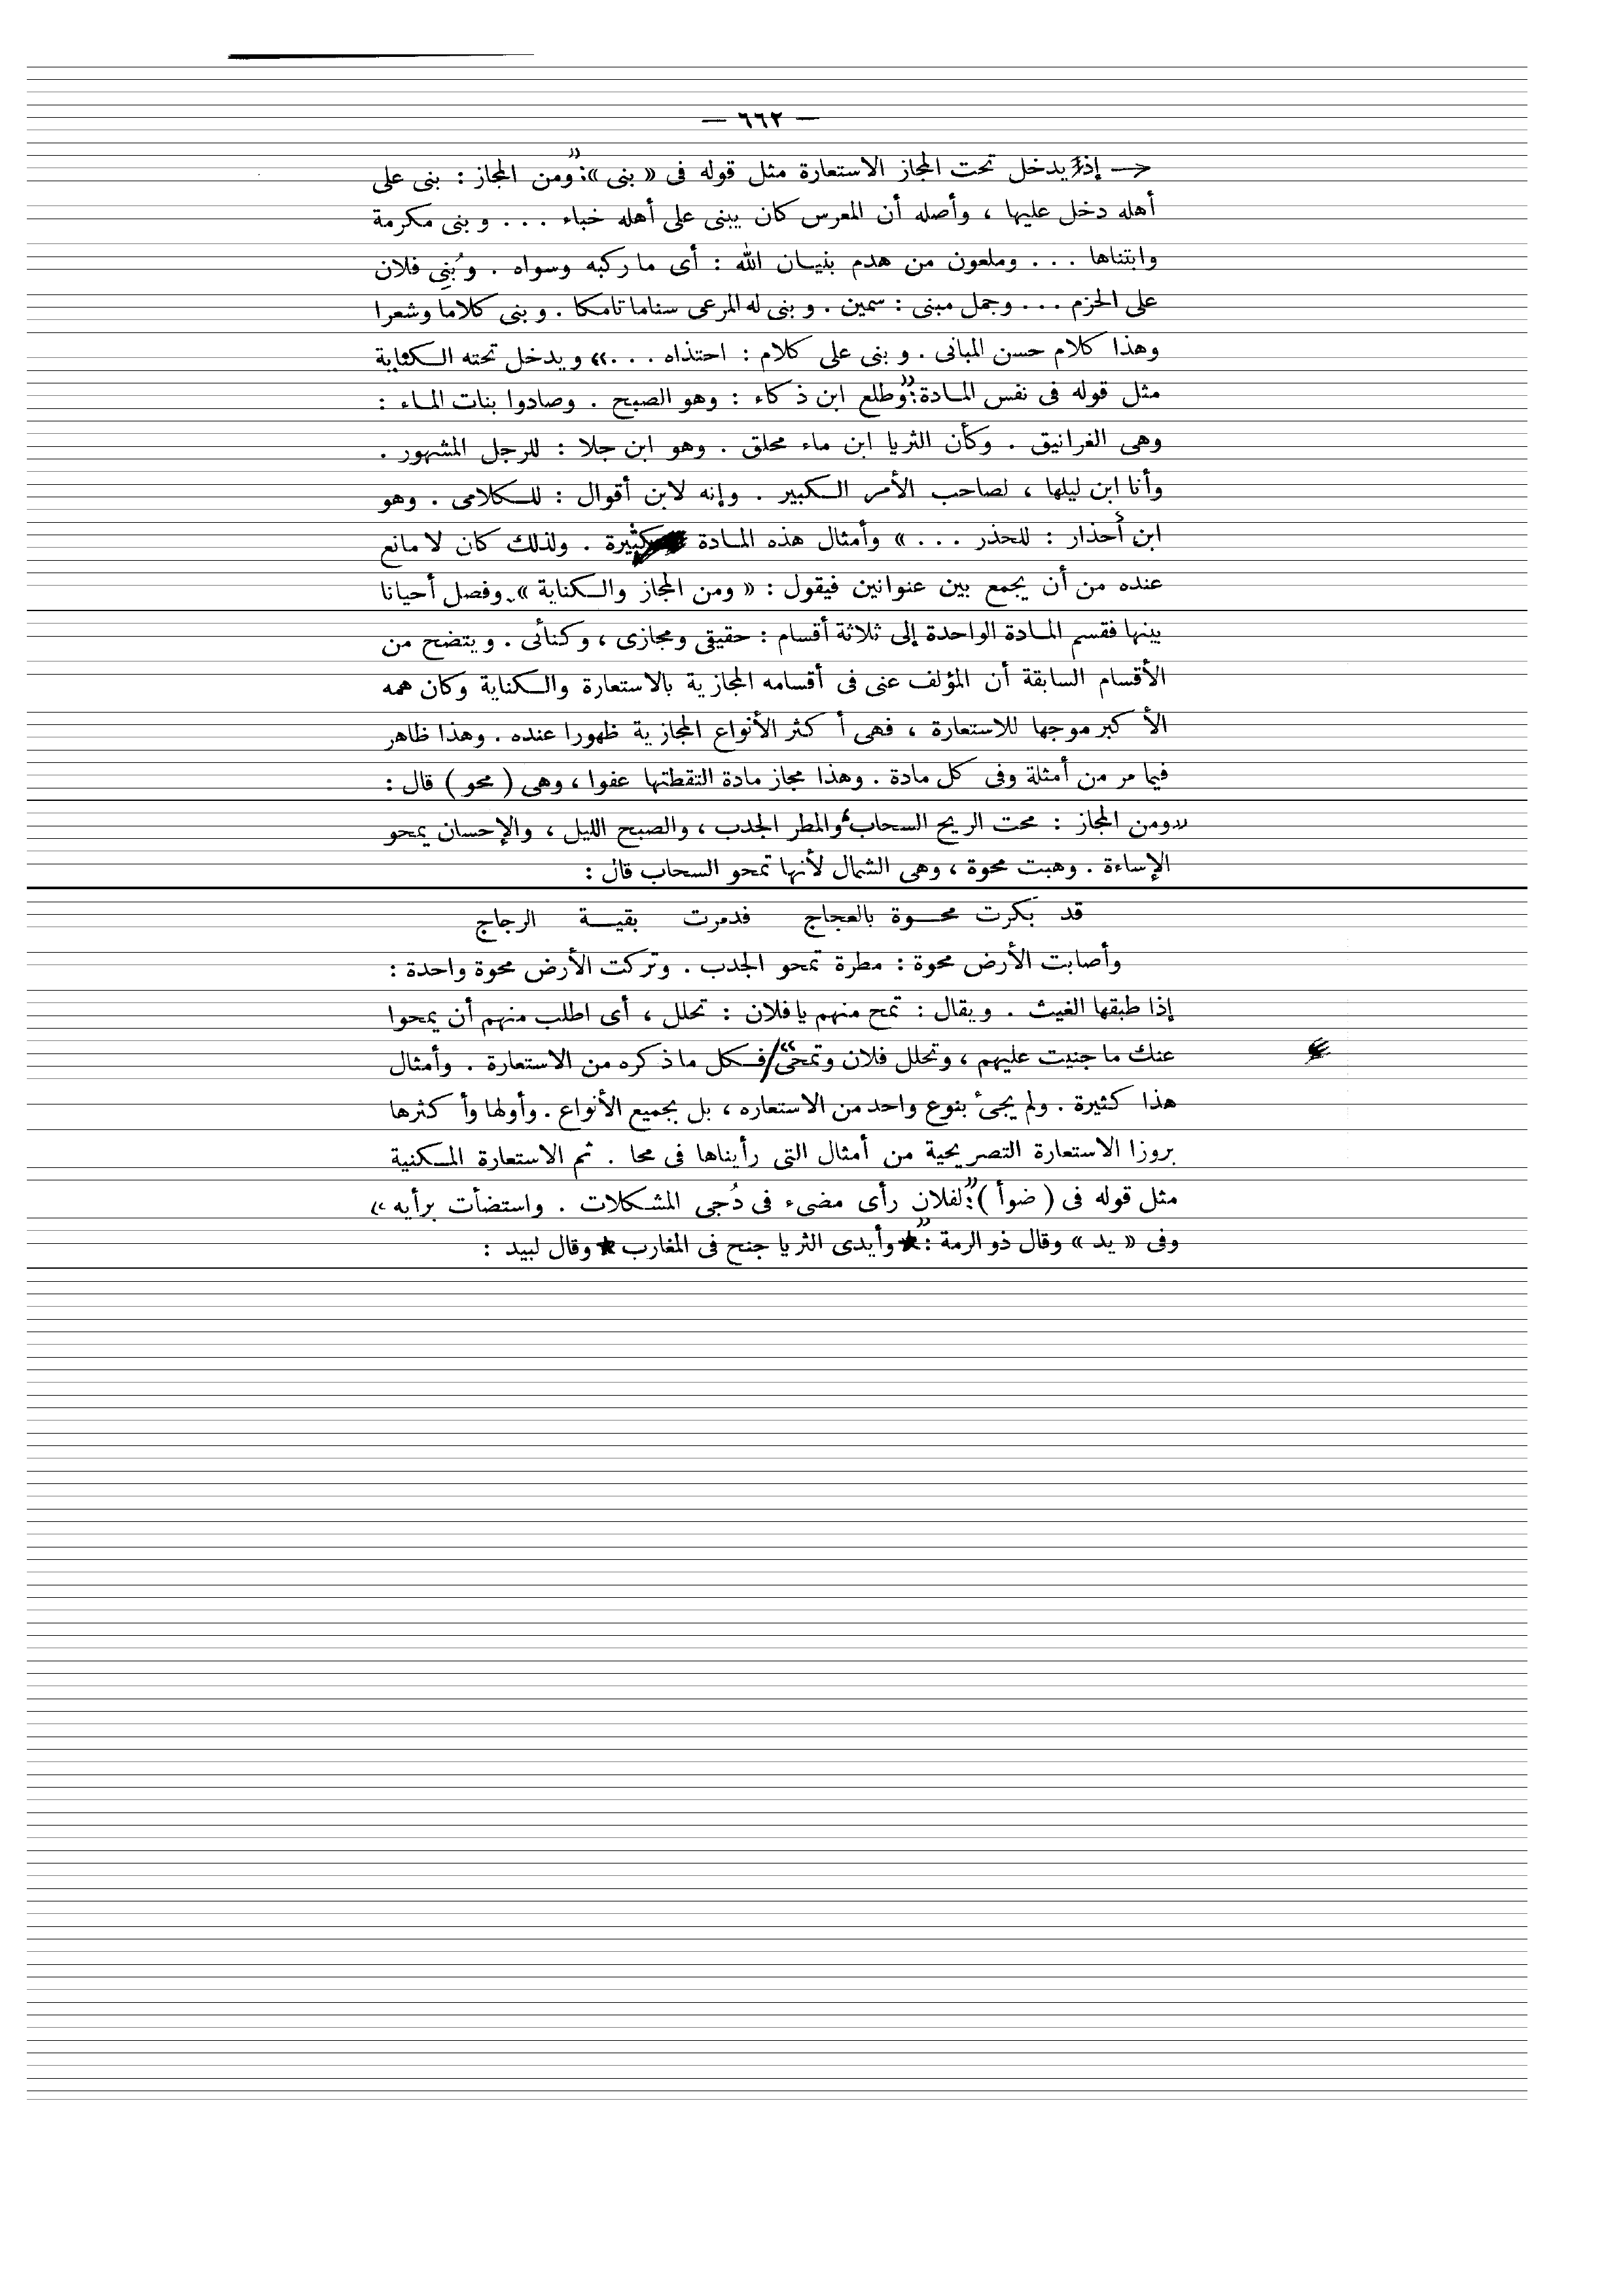 — ٦٦٢ —
إذ يدخل تحت المجاز الاستعارة مثل قوله فى « بنى » : ”ومن المجاز : بنى على
أهله دخل عليها ، وأصله أن المعرس كان يبنى على أهله خباء . . . وبنى مكرمة
وابتناها . . . وملعون من هدم بنيـان الله : أى ما ركبه وسواه . وبُنِى فلان
على الحزم . . . وجمل مبنى : سمين . وبنى له المرعى سناما تامكا . وبنى كلاما وشعرا
وهذا كلام حسن المبانى . وبنى على كلام : احتذاه . . . » ويدخل تحته الـكناية
مثل قوله فى نفس المـادة : ”وطلع ابن ذكاء : وهو الصبح . وصادوا بنات المـاء :
وهى الغرانيق . وكأن الثريا ابن ماء محلق . وهو ابن جلا : للرجل المشهور .
وأنا ابن ليلها ، لصاحب الأمر الـكبير . وإنه لابن أقوال : للـكلامى . وهو
ابن أحذار : للحذر . . . » وأمثال هذه المـادة كثيرة . ولذلك كان لا مانع
عنده من أن يجمع بين عنوانين فيقول : « ومن المجاز والـكناية » . وفصل أحيانا
بينها فقسم المـادة الواحدة إلى ثلاثة أقسام : حقيقى ومجازى ، وكنائى . ويتضح من
الأقسام السابقة أن المؤلف عنى فى أقسامه المجازية بالاستعارة والـكناية وكان همه
الأكبر موجها للاستعارة ، فهى أكثر الأنواع المجازية ظهورا عنده . وهذا ظاهر
فيما مر من أمثلة وفى كل مادة . وهذا مجاز مادة التقطتها عفوا ، وهى ( محو ) قال :
”ومن المجاز : محت الريح السحاب ، والمطر الجدب ، والصبح الليل ، والإحسان يمحو
الإساءة . وهبت محوة ، وهى الشمال لأنها تمحو السحاب قال :
قد بَكرت محـوة بالعجاج فدمرت بقيـة الرجاج
وأصابت الأرض محوة : مطرة تمحو الجدب . وتركت الأرض محوة واحدة :
إذا طبقها الغيث . ويقال : تمح منهم يا فلان : تحلل ، أى اطلب منهم أن يمحوا
عنك ما جنيت عليهم ، وتحلل فلان وتمحّى“ / فـكل ما ذكره من الاستعارة . وأمثال
هذا كثيرة . ولم يجئ بنوع واحد من الاستعاره ، بل بجميع الأنواع . وأولها وأكثرها
بروزا الاستعارة التصريحية من أمثال التى رأيناها فى محا . ثم الاستعارة المـكنية
مثل قوله فى ( ضوأ ) : ”لفلان رأى مضىء فى دُجى المشكلات . واستضأت برأيه »
وفى « يد » وقال ذو الرمة : ”★ وأيدى الثريا جنح فى المغارب ★ وقال لبيد :